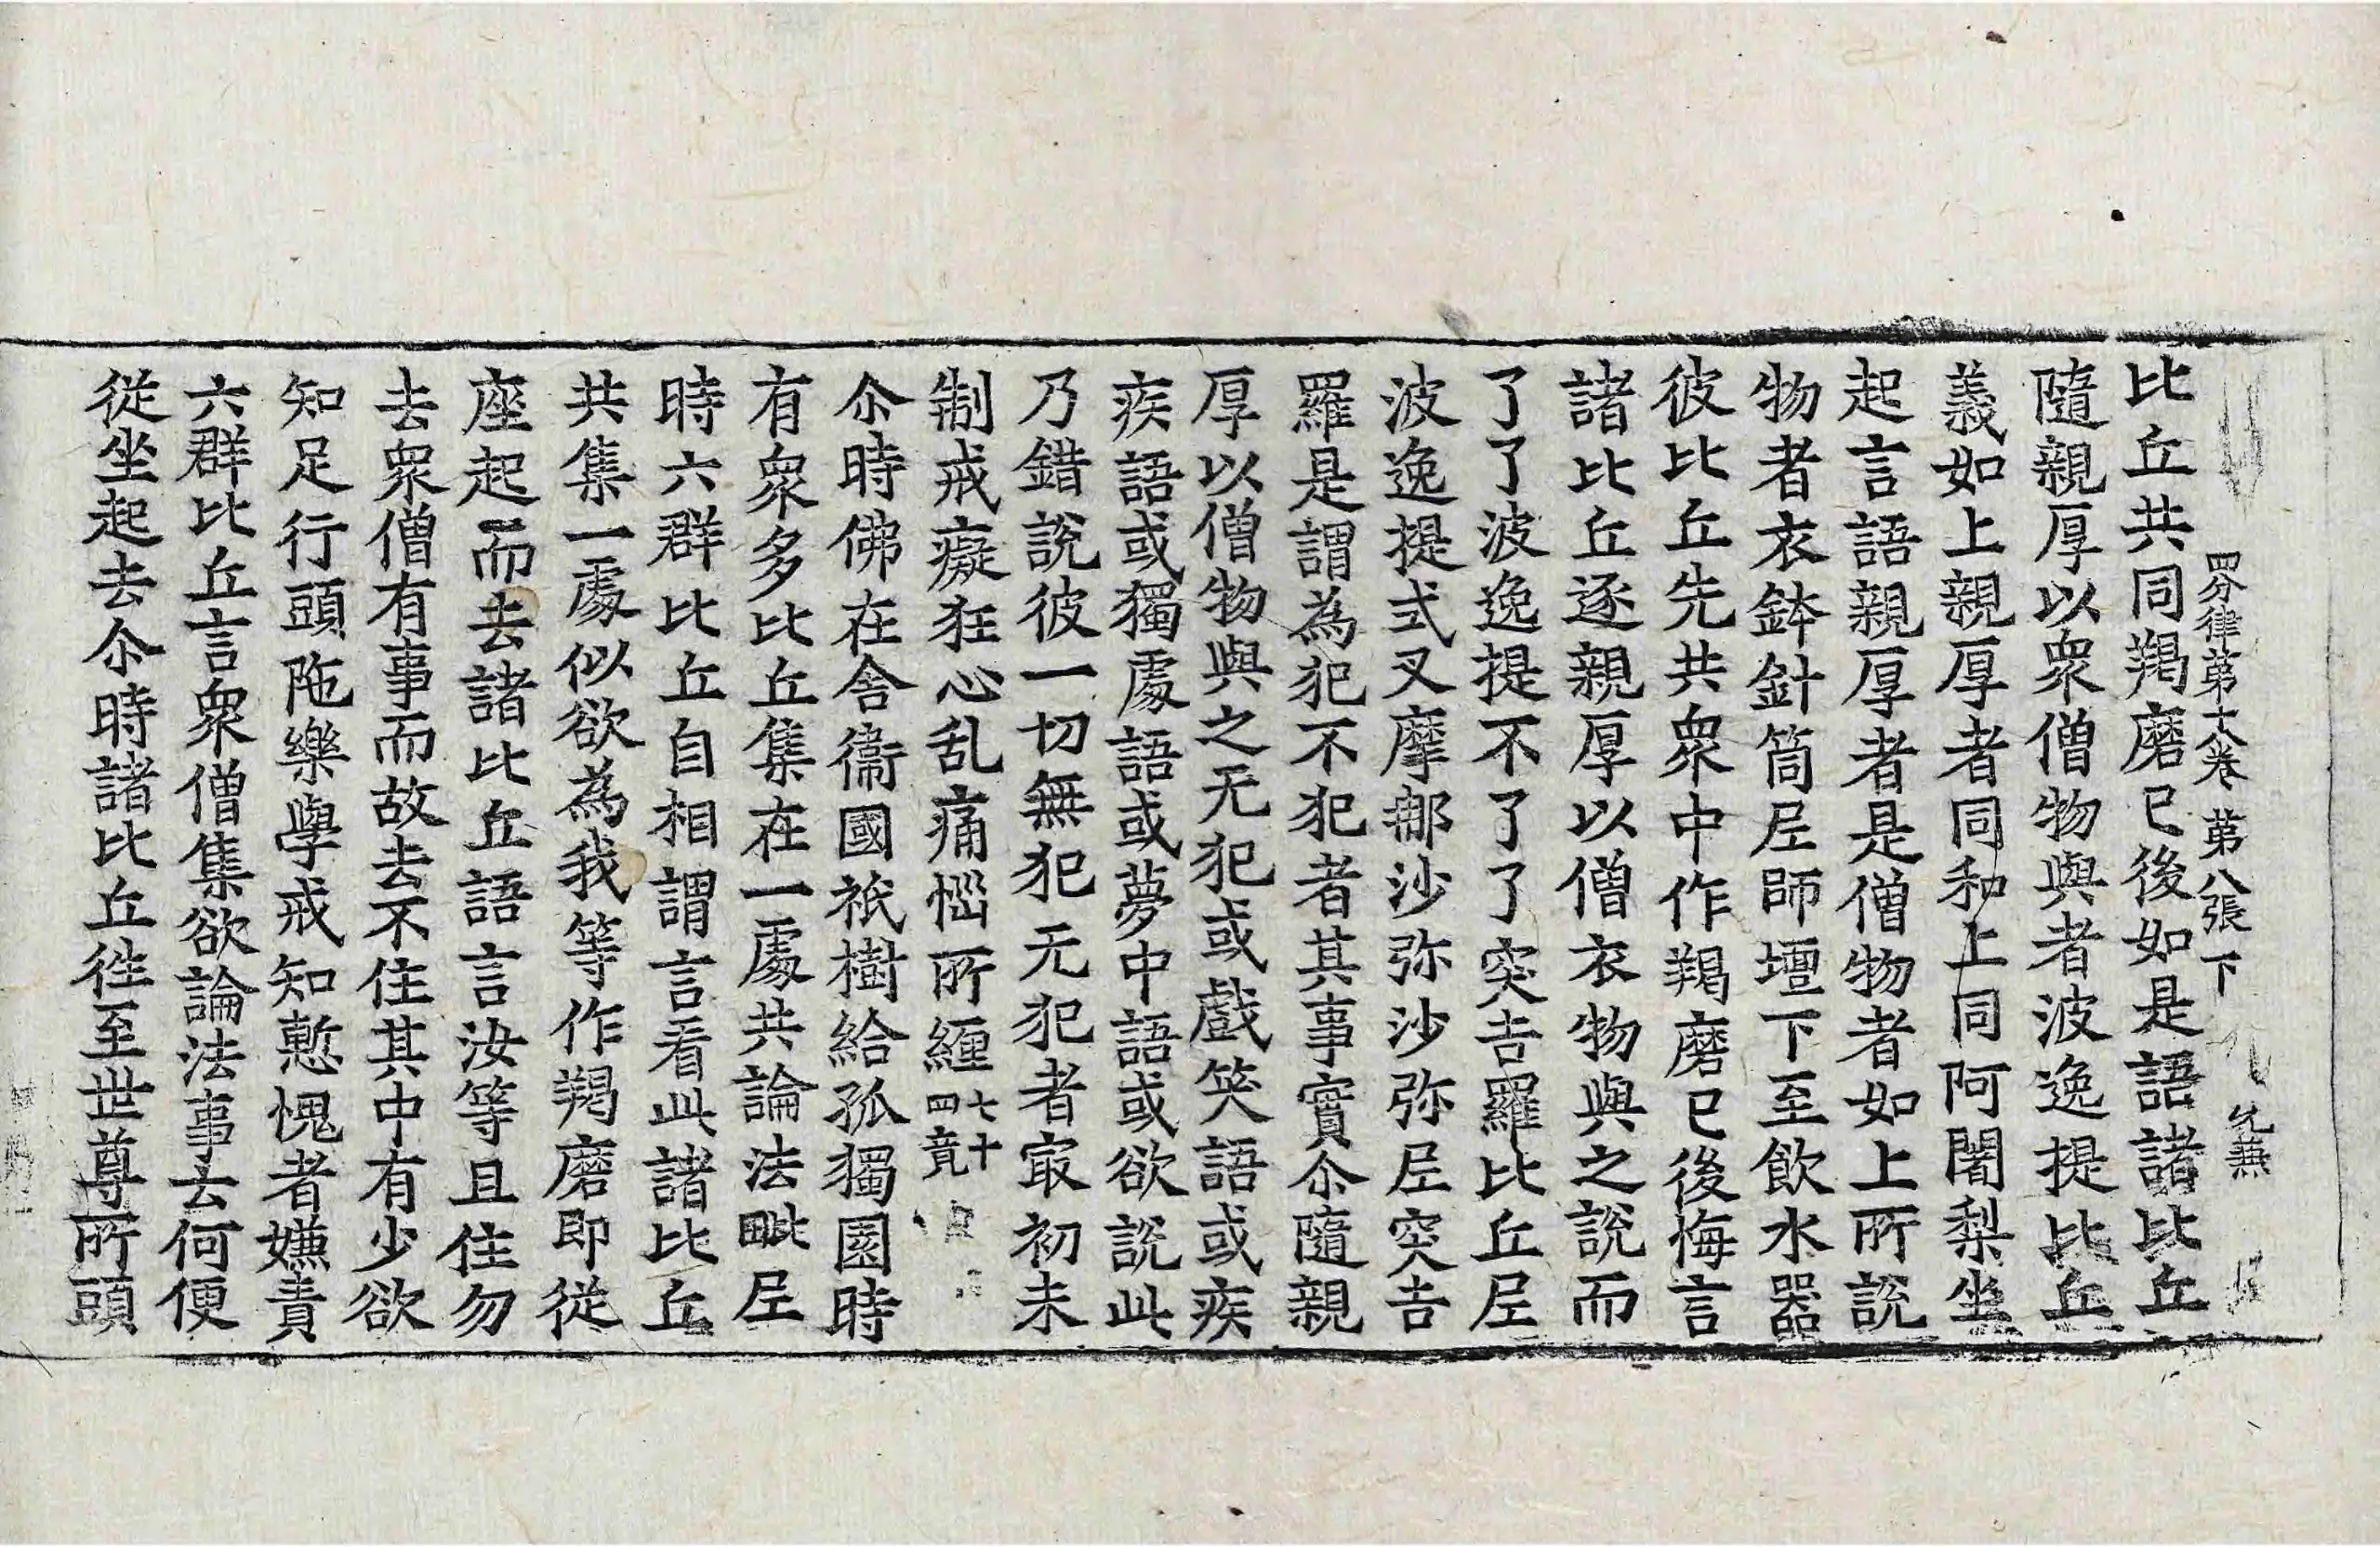 四分律第十八卷 第八張 下
比丘共同羯磨已後如是語諸比丘
隨親厚以衆僧物與者波逸提比丘
義如上親厚者同和上同阿闍梨坐
起言語親厚者是僧物者如上所說
物者衣鉢針筒𡰱師壇下至飲水器
彼比丘先共衆中作羯磨已後悔言
諸比丘逐親厚以僧衣物與之說而
了了波逸提不了了突吉羅比丘𡰱
波逸提式叉摩那沙弥沙弥𡰱突吉
羅是謂為犯不犯者其事實尒隨親
厚以僧物與之无犯或戲笑語或疾
疾語或獨處語或夢中語或欲說此
乃錯說彼一切無犯无犯者㝡初未
制戒癡狂心乱痛惱所纏七十四竟
尒時佛在舍衞國祇樹給孤獨園時
有衆多比丘集在一處共論法毗𡰱
時六群比丘自相謂言看此諸比丘
共集一處似欲為我等作羯磨即從
座起而去諸比丘語言汝等且住勿
去衆僧有事而故去不住其中有少欲
知足行頭陁樂學戒知慙愧者嫌責
六群比丘言衆僧集欲論法事云何便
從坐起去尒時諸比丘徃至世尊所頭